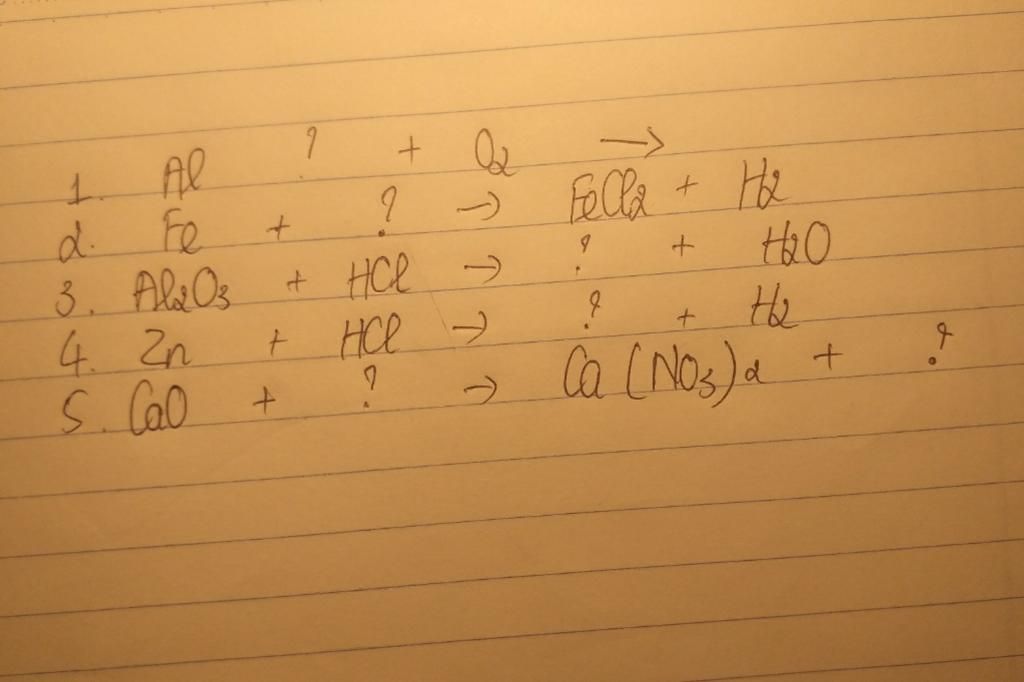 1. Al ? + O2 →
2. Fe + ? → FeCl2 + H2
3. Al2O3 + HCl → ? + H2O
4. Zn + HCl → ? + H2
5. CaO + ? → Ca(NO3)2 + ?